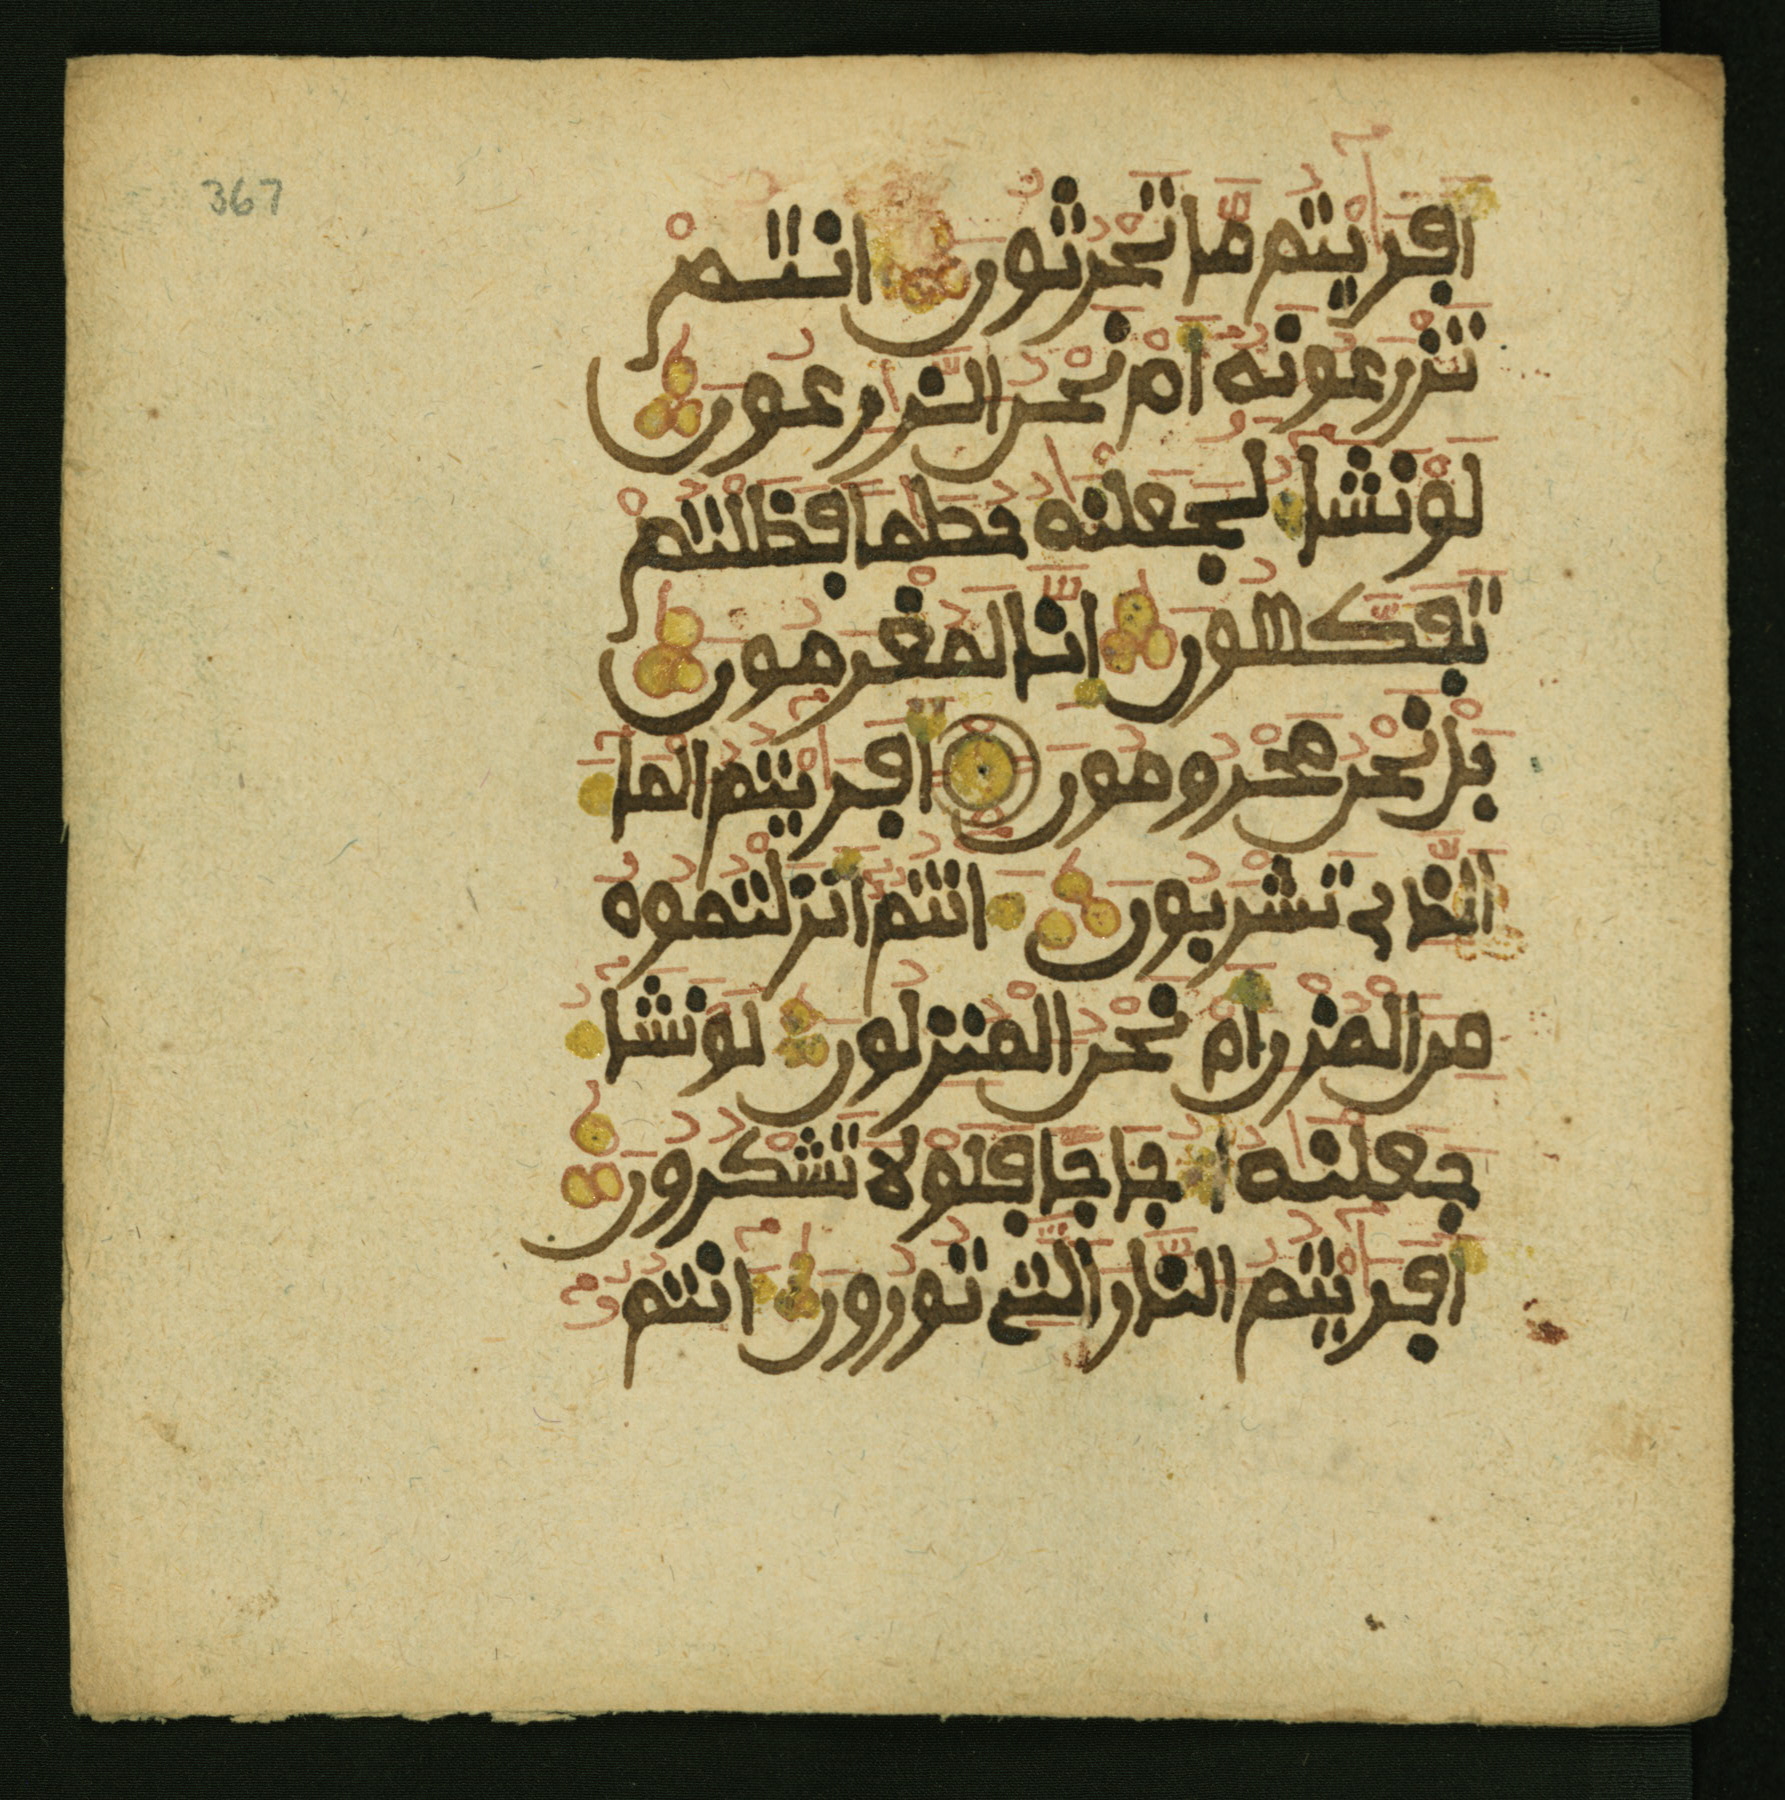 367
افريتم ما تحرثون انتم
تزرعونه ام نحن الزرعون
لو نشا لجعلنه حطما فظلتم
تفكهون انا لمغرمون
بل نحن محرومون افريتم الما
الذي تشربون انتم انزلتموه
من المزن ام نحن المنزلون لو نشا
جعلنه اجاجا فلولا تشكرون
افريتم النار التي تورون انتم